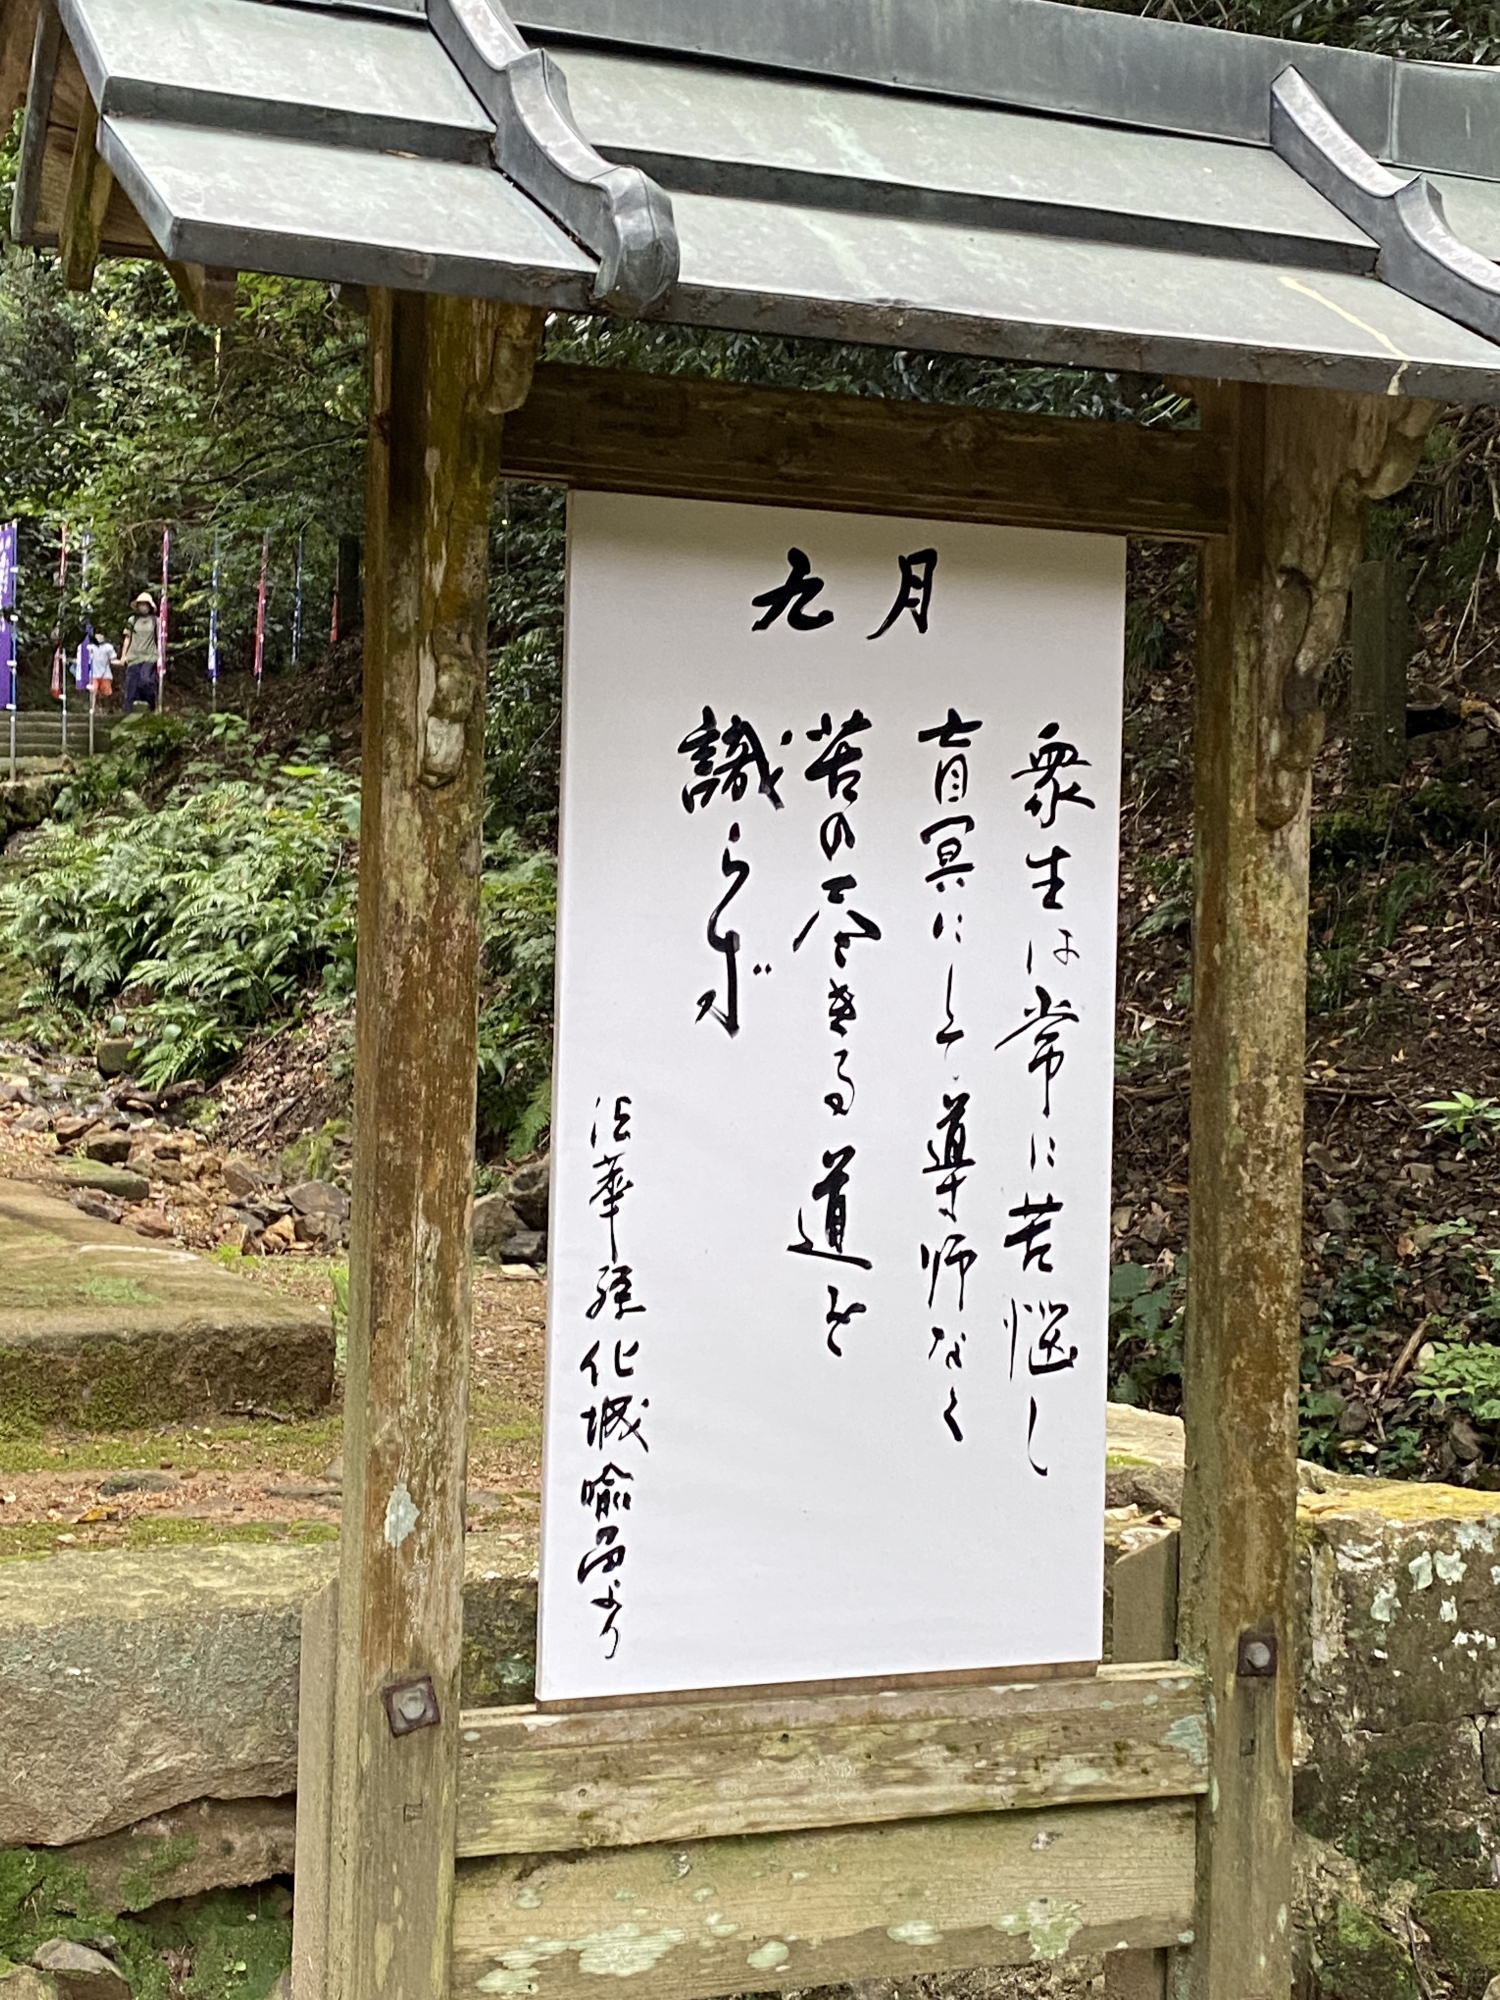 九月
衆生は常に苦悩し
盲冥にして導師なく
苦の尽きる道を
識らず
法華経化城喩品より